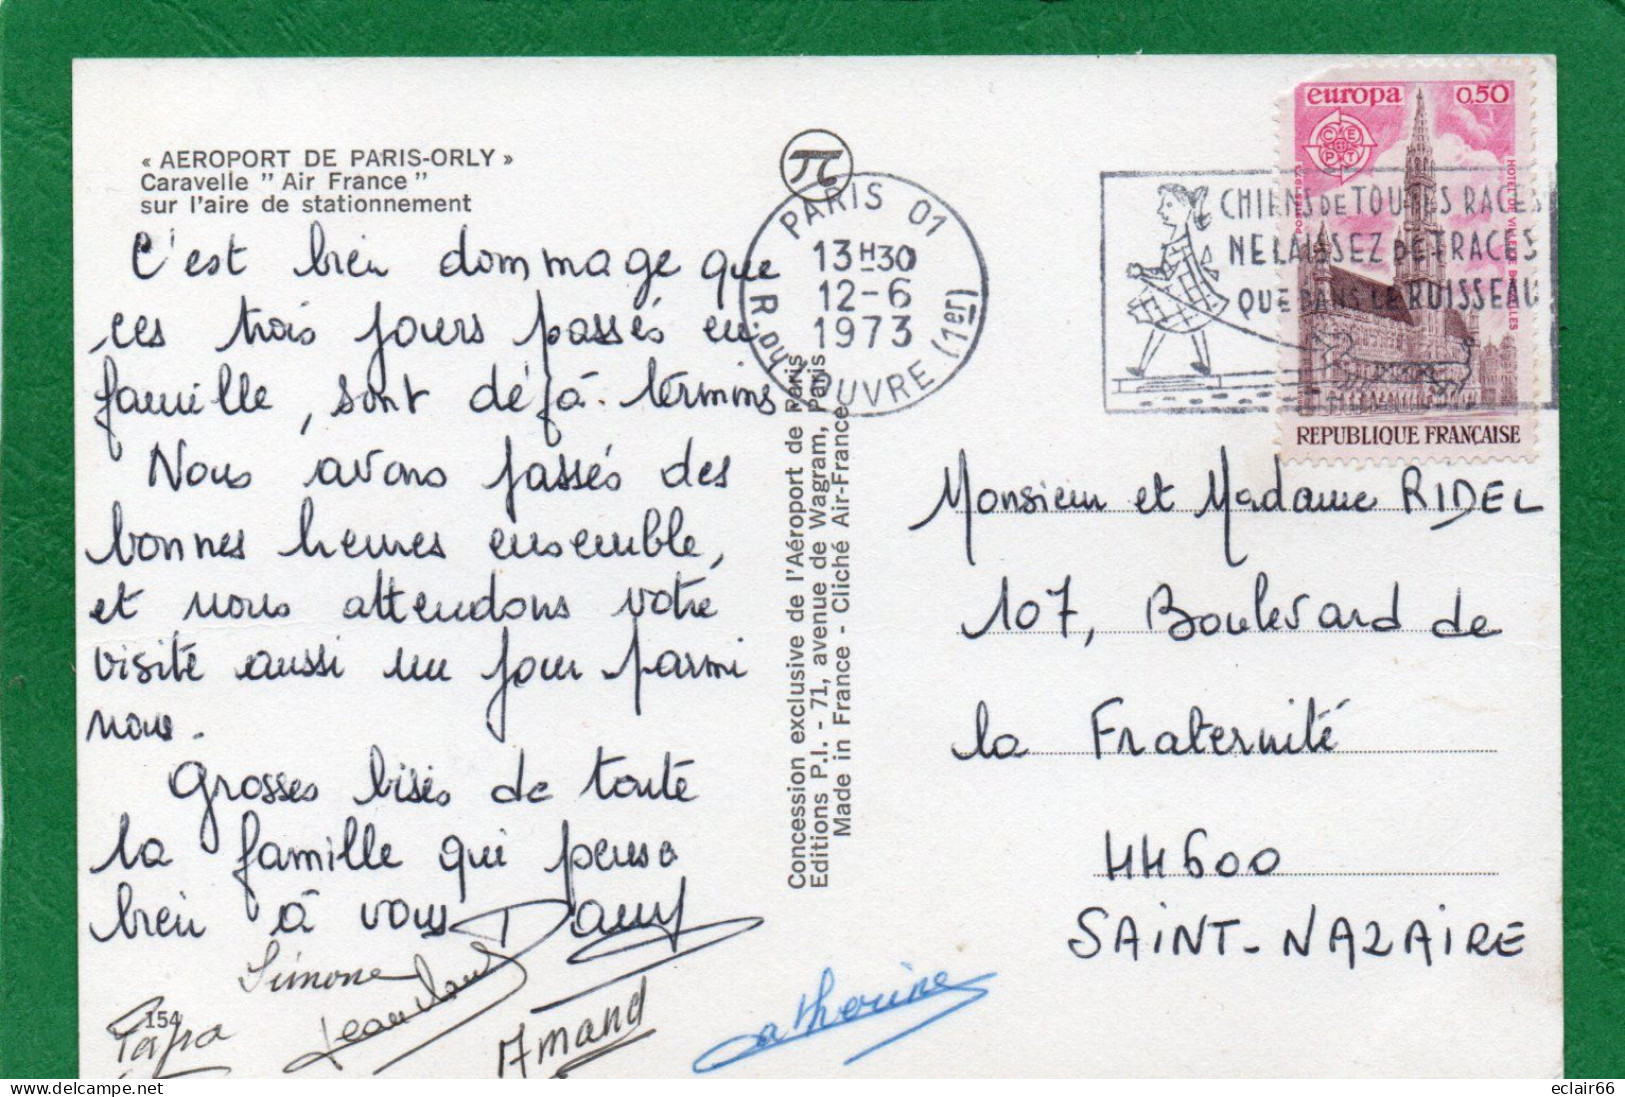 « AEROPORT DE PARIS-ORLY »
Caravelle " Air France "
sur l'aire de stationnement
C'est bien dommage que
ces trois jours passés en
famille, sont déjà terminés
Nous avons passés des
bonnes heures ensemble,
et nous attendons votre
visite aussi un jour parmi
nous.
Grosses bises de toute
la famille qui pense
bien à vous
Simone
Papa
Armand
Catherine
154
Concession exclusive de l'Aéroport de Paris
Editions P.I. - 71, avenue de Wagram, Paris
Made in France - Cliché Air-France
PARIS 01
13H30
12-6
1973
R. du LOUVRE (1er)
CHIENS DE TOUTES RACES
NE LAISSEZ DE TRACES
QUE DANS LE RUISSEAU
europa 0,50
CEPT
POSTES 1973
HOTEL DE VILLE DE BRUXELLES
REPUBLIQUE FRANÇAISE
Monsieur et Madame RIDEL
107, Boulevard de
la Fraternité
44600
SAINT-NAZAIRE
delcampe.net
eclair66